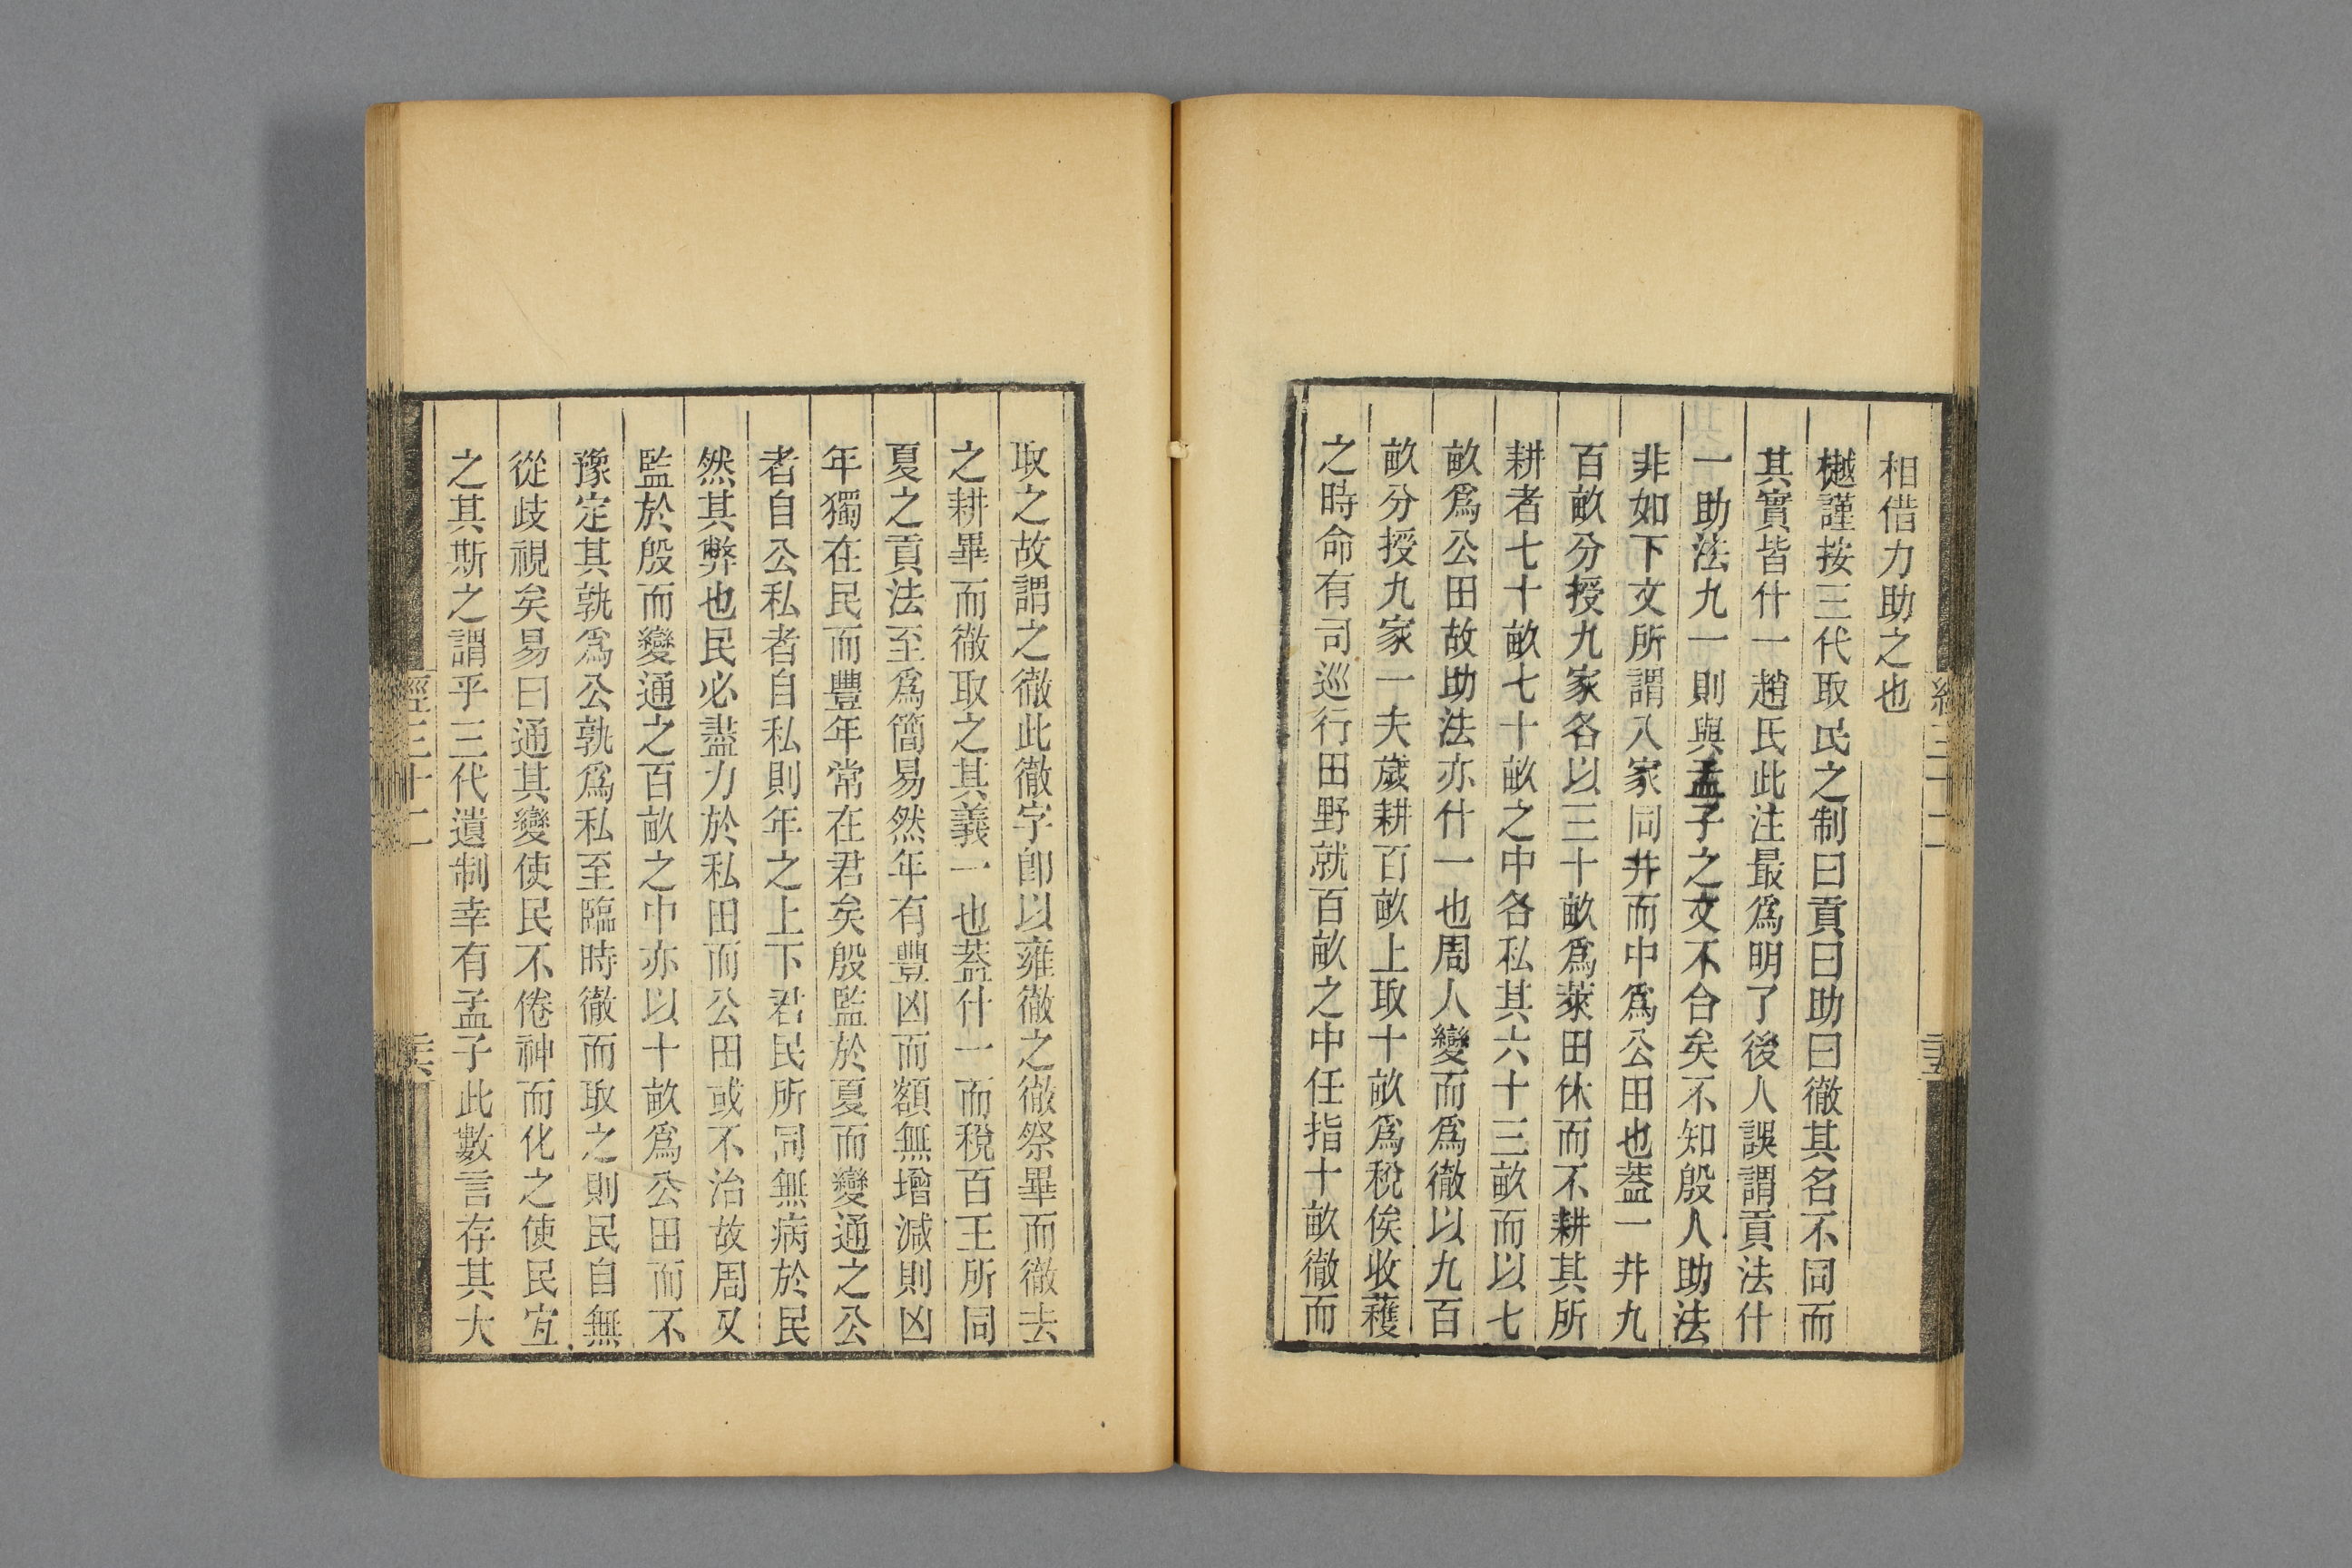 相借力助之也
樾謹按三代取民之制曰貢曰助曰徹其名不同而
其實皆什一趙氏此注最爲明了後人誤謂貢法什
一助法九一則與孟子之文不合矣不知殷人助法
非如下文所謂八家同井而中爲公田也蓋一井九
百畝分授九家各以三十畝爲萊田休而不耕其所
耕者七十畝七十畝之中各私其六十三畝而以七
畝爲公田故助法亦什一也周人變而爲徹以九百
畝分授九家一夫歲耕百畝上取十畝爲稅俟收穫
之時命有司巡行田野就百畝之中任指十畝徹而
取之故謂之徹此徹字卽以雍徹之徹祭畢而徹去
之耕畢而徹取之其義一也蓋什一而稅百王所同
夏之貢法至爲簡易然年有豐凶而額無增減則凶
年獨在民而豐年常在君矣殷監於夏而變通之公
者自公私者自私則年之上下君民所同無病於民
然其弊也民必盡力於私田而公田或不治故周又
監於殷而變通之百畝之中亦以十畝爲公田而不
豫定其孰爲公孰爲私至臨時徹而取之則民自無
從歧視矣易曰通其變使民不倦神而化之使民宜
之其斯之謂乎三代遺制幸有孟子此數言存其大
經三十二